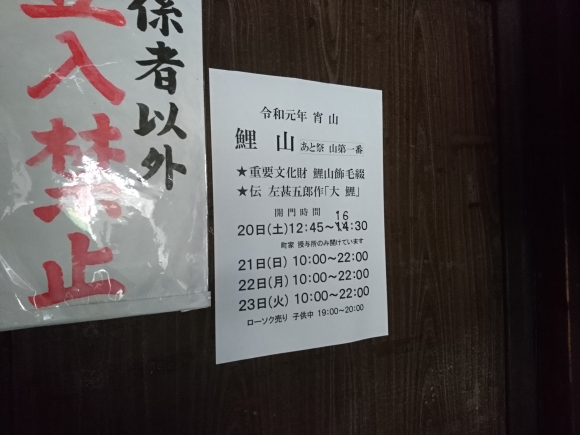 係者以外
立入禁止
令和元年 宵山
鯉 山 あと祭 山第一番
★重要文化財 鯉山飾毛綴
★伝 左甚五郎作「大 鯉」
開門時間
20日(土) 12:45~16:30
町家 授与所のみ開けています
21日(日) 10:00~22:00
22日(月) 10:00~22:00
23日(火) 10:00~22:00
ローソク売り 子供中 19:00~20:00